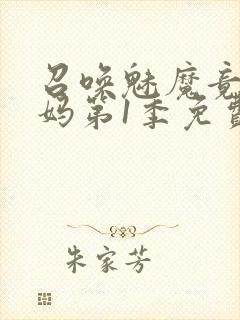 召唤魅魔竟
妈第1季免费
朱家芳